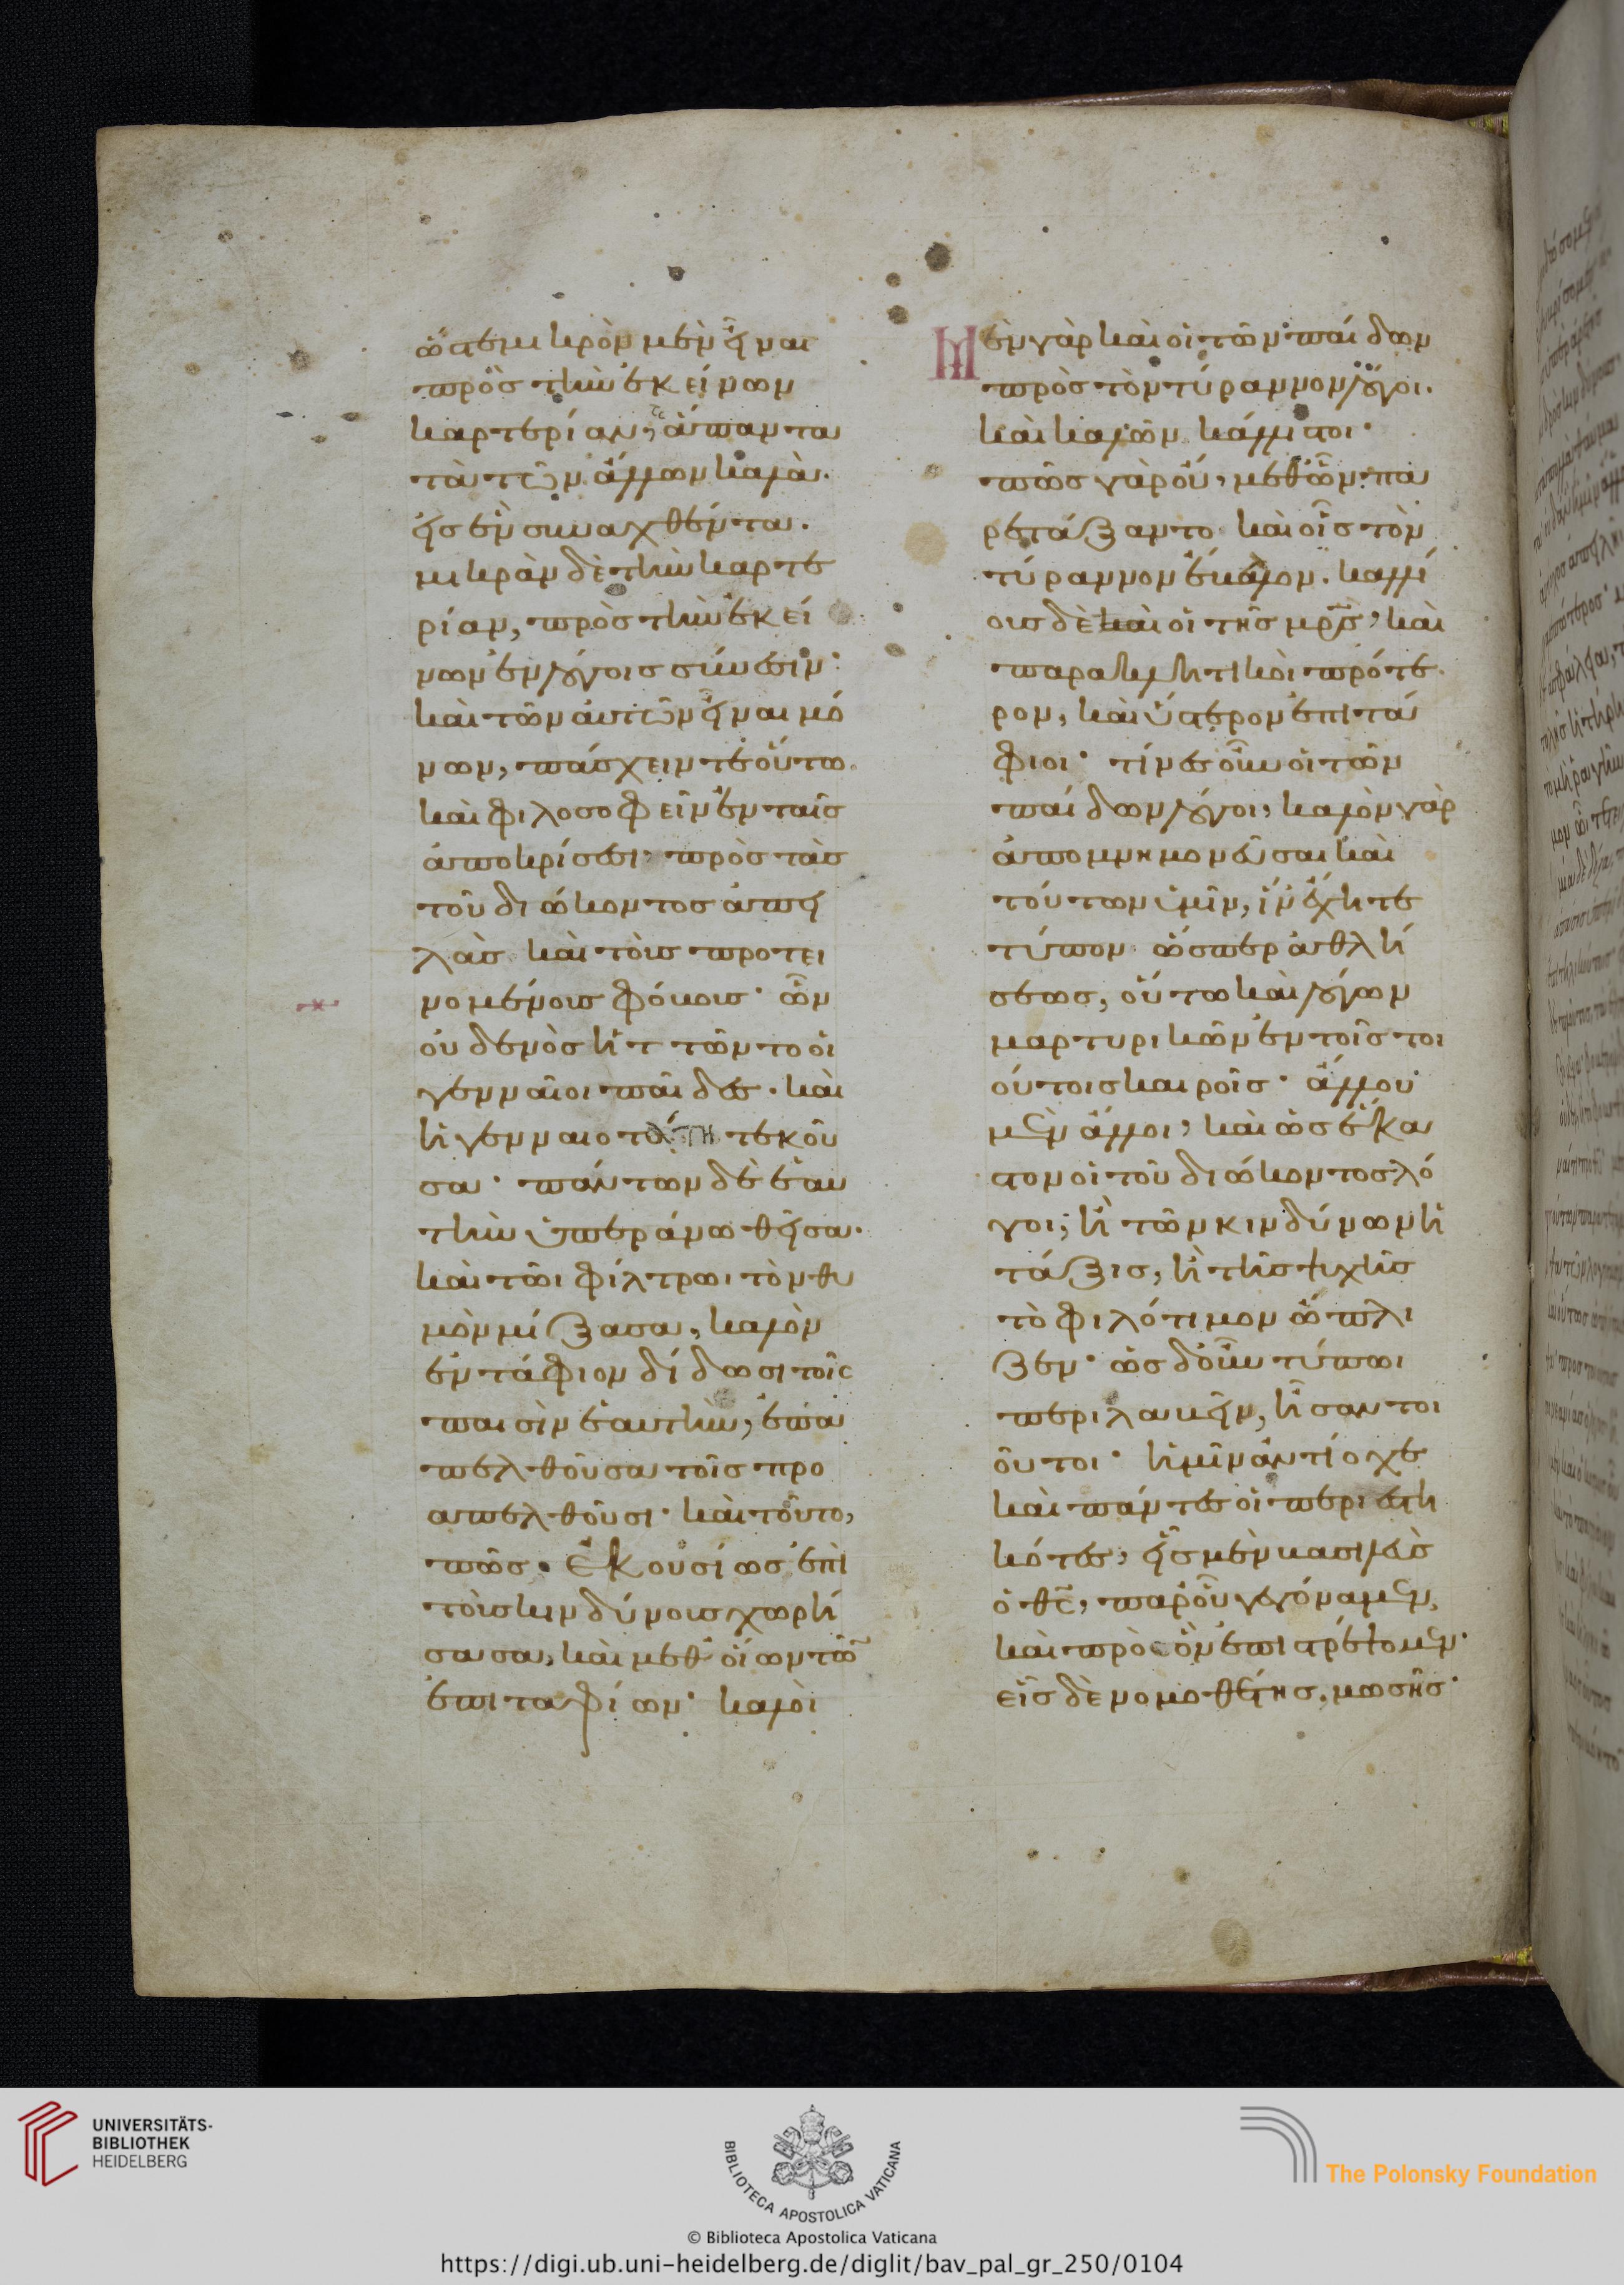 ὥστε μικρὸν μὲν εἶναι
πρὸς τὴν ἐκείνων
καρτερίαν, ἅπαντα
τὰ τῶν ἄλλων καλὰ.
εἰς ἓν συναχθέντα.
μικρὰν δὲ τὴν καρτε
ρίαν, πρὸς τὴν ἐκεί
νων ἐν λόγοις σύνεσιν·
καὶ τῶν αὐτῶν εἶναι μό
νων, πάσχειν τε οὕτω
καὶ φιλοσοφεῖν ἐν ταῖς
ἀποκρίσεσι, πρὸς τὰς
τοῦ διώκοντος ἀπει
λὰς καὶ τοῖς προτει
νομένοις φόβοις· ὧν
οὐδενὸς ἥττῶντο οἱ
γενναῖοι παῖδες. καὶ
ἡ γενναιοτέρα τεκοῦ
σα· πάντων δὲ ἑαυ
τὴν ὑπεράνω θεῖσα.
καὶ τῶι φίλτρωι τὸν θυ
μὸν μίξασα, καλὸν
ἐντάφιον δίδωσι τοῖς
παισὶν ἑαυτὴν, ἐπα
πελθοῦσα τοῖς προ
απελθοῦσι· καὶ τοῦτο,
πῶς. Ἑκουσίως ἐπὶ
τοῖς κινδύνοις χωρή
σασα, καὶ μεθ' οἵων τῶν
ἐπιταφίων· καλοὶ
Μὲν γὰρ καὶ οἱ τῶν παίδων
πρὸς τὸν τύραννον λόγοι.
καὶ καλῶν κάλλιστοι·
πῶς γὰρ οὔ, μεθ' ὧν πα
ρετάξαντο καὶ οἷς τὸν
τύραννον ἔβαλον. καλλί
ους δὲ καὶ οἱ τῆς μρς, καὶ
παρακλητικοὶ πρότε
ρον, καὶ ὕστερον ἐπιτά
φιοι· τίνες οὖν οἱ τῶν
παίδων λόγοι, καλὸν γὰρ
ἀπομνημονεῦσαι καὶ
τούτων ὑμῖν, ἵν' ἔχητε
τύπον ὥσπερ ἀθλή
σεως, οὕτω καὶ λόγων
μαρτυρικῶν ἐν τοῖς τοι
ούτοις καιροῖς· ἄλλου
μὲν ἄλλοι, καὶ ὡς ἕκα
στον οἱ τοῦ διώκοντος λό
γοι, ἢ τῶν κινδύνων ἡ
τάξις, ἢ τῆς ψυχῆς
τὸ φιλότιμον ὥπλι
ζεν· ὡς δ' οὖν τύπωι
περιλαβεῖν, ἦσαν τοι
οῦτοι· ἡμῖν ἀντίοχε
καὶ πάντες οἱ περιεστη
κότες, εἷς μὲν βασιλεὺς
ὁ θς, παρ' οὗ γεγόναμεν,
καὶ πρὸς ὃν ἐπιστρέψομεν·
εἷς δὲ νομοθέτης, μωσῆς·
UNIVERSITÄTS-
BIBLIOTHEK
HEIDELBERG
BIBLIOTECA APOSTOLICA VATICANA
The Polonsky Foundation
© Biblioteca Apostolica Vaticana
https://digi.ub.uni-heidelberg.de/diglit/bav_pal_gr_250/0104